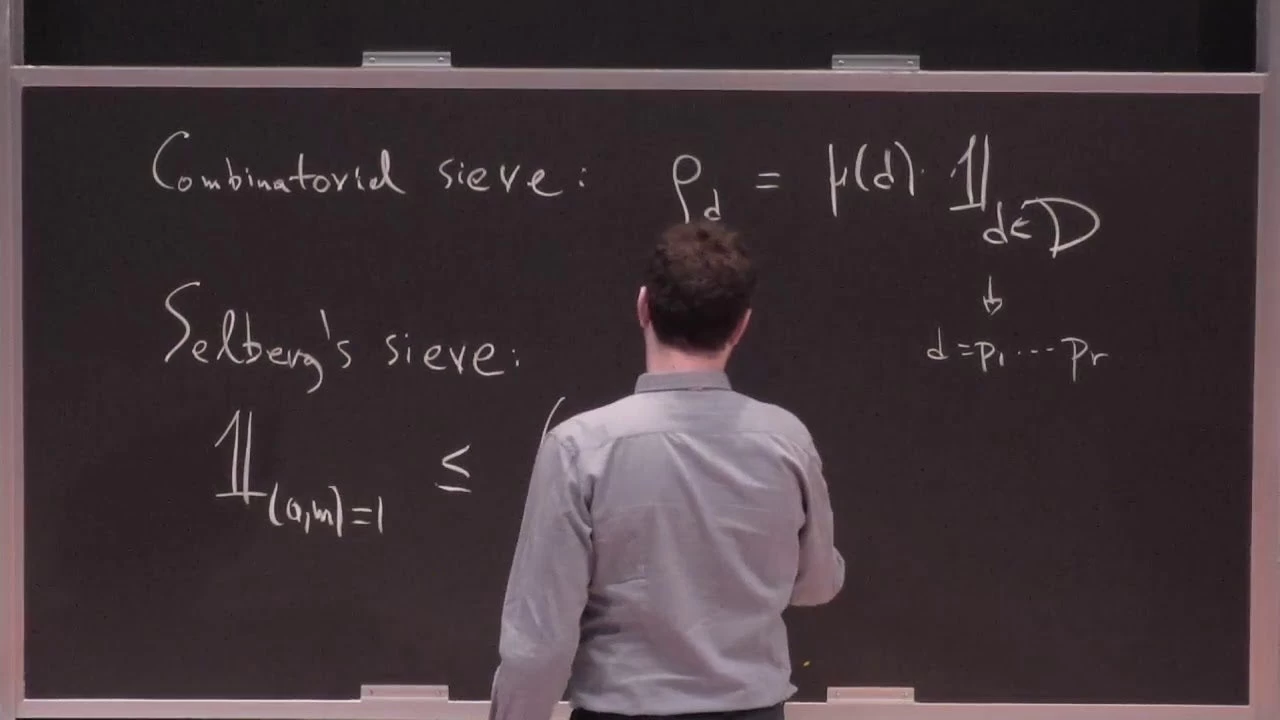 Combinatorial sieve: ρ_d = μ(d) · 𝟙_{d∈D}
↓
d = p₁ ··· pᵣ
Selberg's sieve:
𝟙_{(a,m)=1} ≤ (